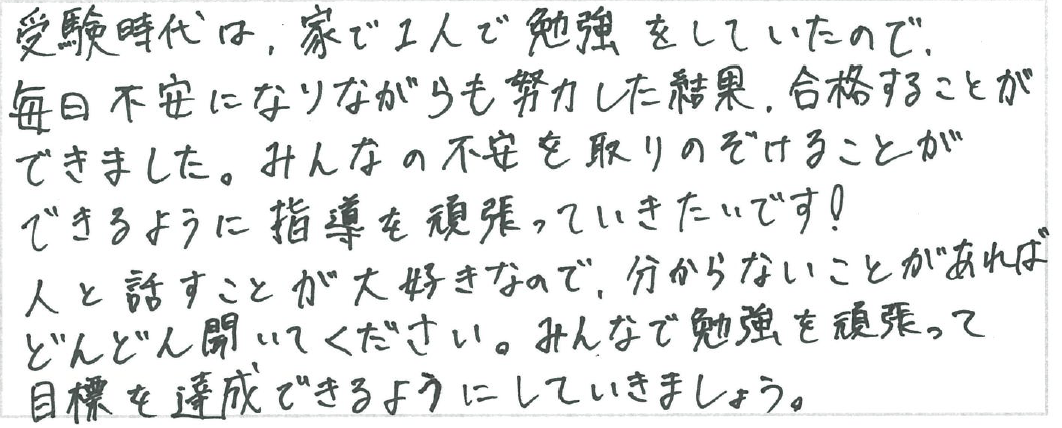 受験時代は、家で1人で勉強をしていたので、
毎日不安になりながらも努力した結果、合格することが
できました。みんなの不安を取りのぞけることが
できるように指導を頑張っていきたいです!
人と話すことが大好きなので、分からないことがあれば
どんどん聞いてください。みんなで勉強を頑張って
目標を達成できるようにしていきましょう。